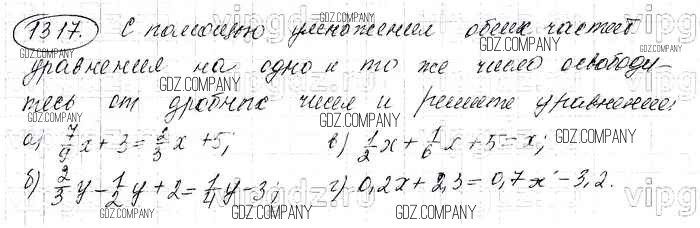 1317. С помощью умножения обеих частей
уравнения на одно и то же число освободи-
тесь от дробных чисел и решите уравнение:
а) 7/9 x + 3 = 2/3 x + 5; в) 1/2 x + 1/6 x + 5 = x;
б) 2/3 y - 1/2 y + 2 = 1/4 y - 3; г) 0,2x + 2,3 = 0,7x - 3,2.
GDZ.COMPANY
GDZ.COMPANY
GDZ.COMPANY
GDZ.COMPANY
GDZ.COMPANY
GDZ.COMPANY
GDZ.COMPANY
GDZ.COMPANY
GDZ.COMPANY
GDZ.COMPANY
GDZ.COMPANY
GDZ.COMPANY